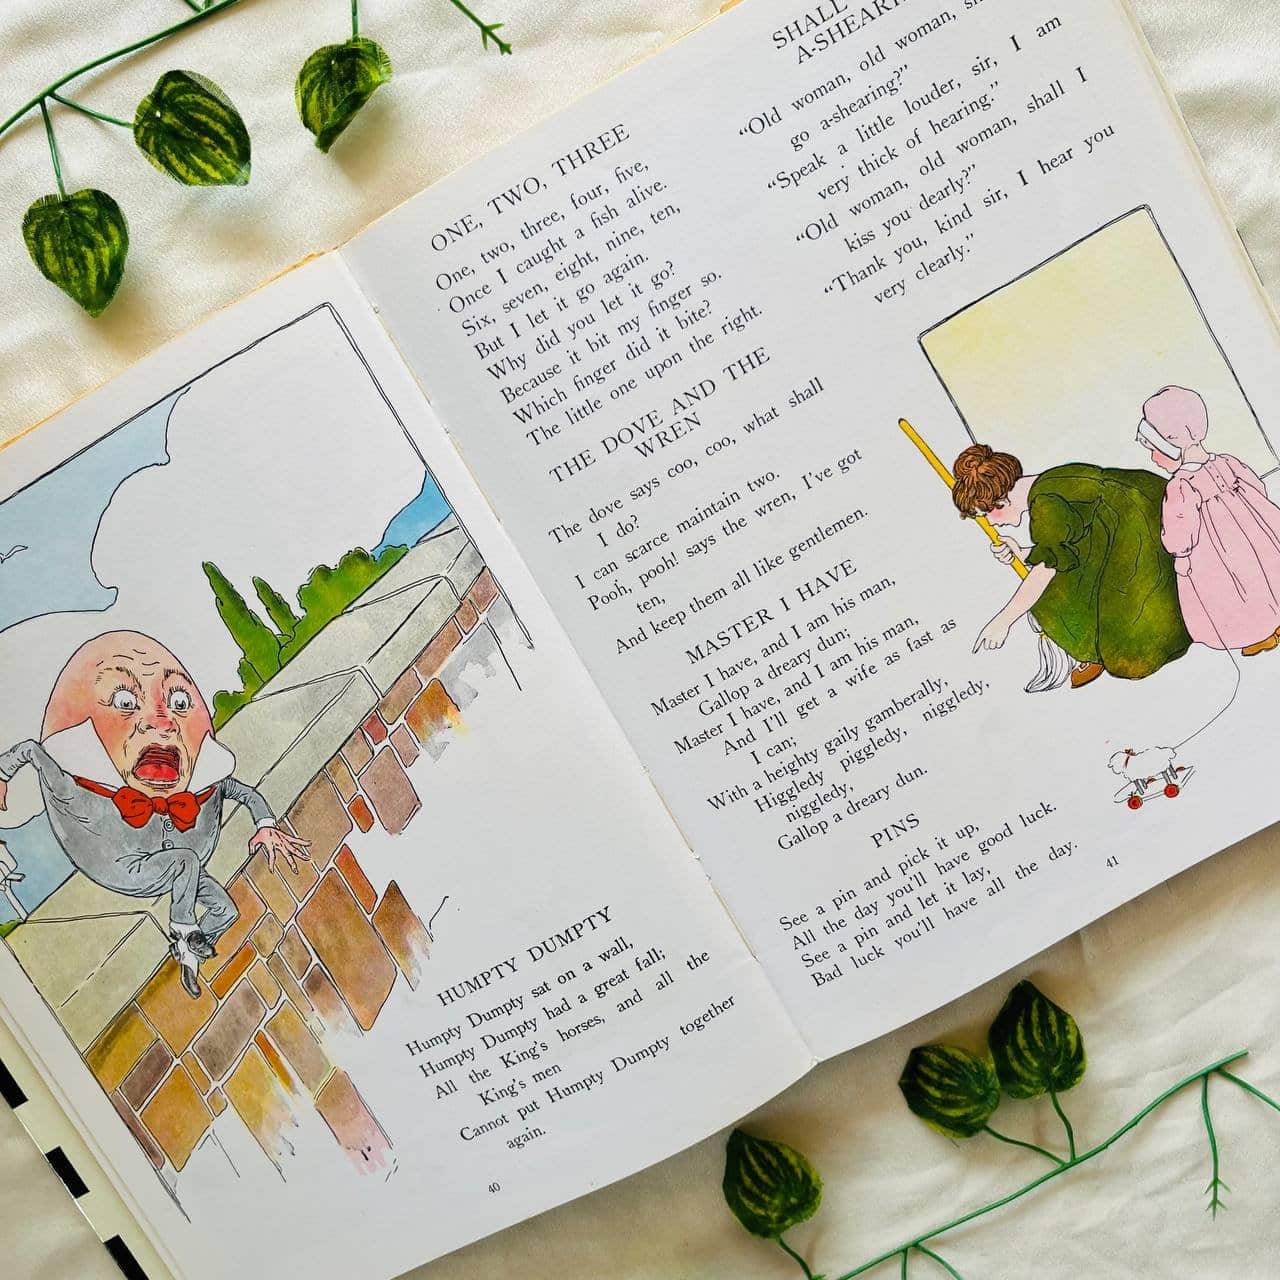 HUMPTY DUMPTY
Humpty Dumpty sat on a wall,
Humpty Dumpty had a great fall;
All the King's horses, and all the
King's men
Cannot put Humpty Dumpty together
again.
40
ONE, TWO, THREE
One, two, three, four, five,
Once I caught a fish alive.
Six, seven, eight, nine, ten,
But I let it go again.
Why did you let it go?
Because it bit my finger so.
Which finger did it bite?
The little one upon the right.
THE DOVE AND THE
WREN
The dove says coo, coo, what shall
I do?
I can scarce maintain two.
Pooh, pooh! says the wren, I've got
ten,
And keep them all like gentlemen.
MASTER I HAVE
Master I have, and I am his man,
Gallop a dreary dun;
Master I have, and I am his man,
And I'll get a wife as fast as
I can;
With a heighty gaily gamberally,
Higgledy piggledy, niggledy,
niggledy,
Gallop a dreary dun.
PINS
See a pin and pick it up,
All the day you'll have good luck.
See a pin and let it lay,
Bad luck you'll have all the day.
SHALL
"Old woman, old woman,
go a-shearing?"
"Speak a little louder, sir, I am
very thick of hearing."
"Old woman, old woman, shall I
kiss you dearly?"
"Thank you, kind sir, I hear you
very clearly."
41